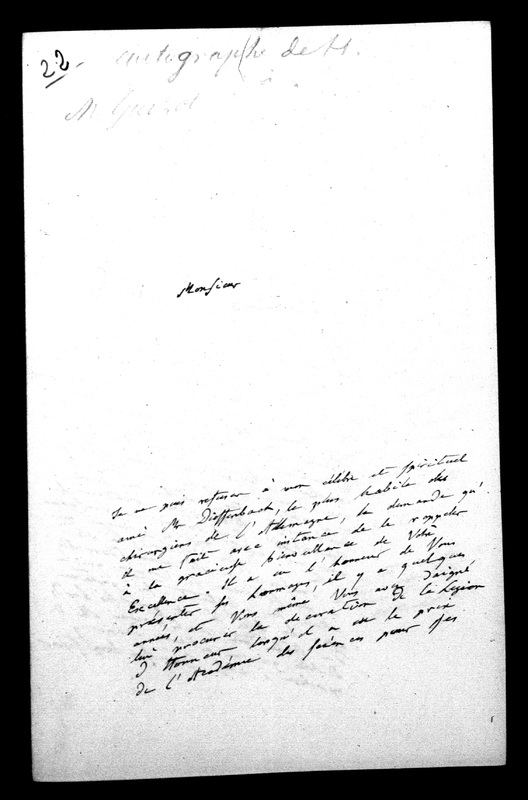 22.
autographe de H.
à
M
Monsieur
Je ne puis refuser à mon célèbre et spirituel
ami Mr Dieffenbach, le plus habile des
chirurgiens de l'Allemagne, la demande qu'
il me fait avec instance de le rappeler
à la gracieuse bienveillance de Votre
Excellence. Il a eu l'honneur de Vous
présenter ses hommages, il y a quelques
années, et Vous même Vous avez daigné
lui procurer la décoration de la Legion
d'Honneur lorsqu'il a eu le prix
de l'Académie des sciences pour ses